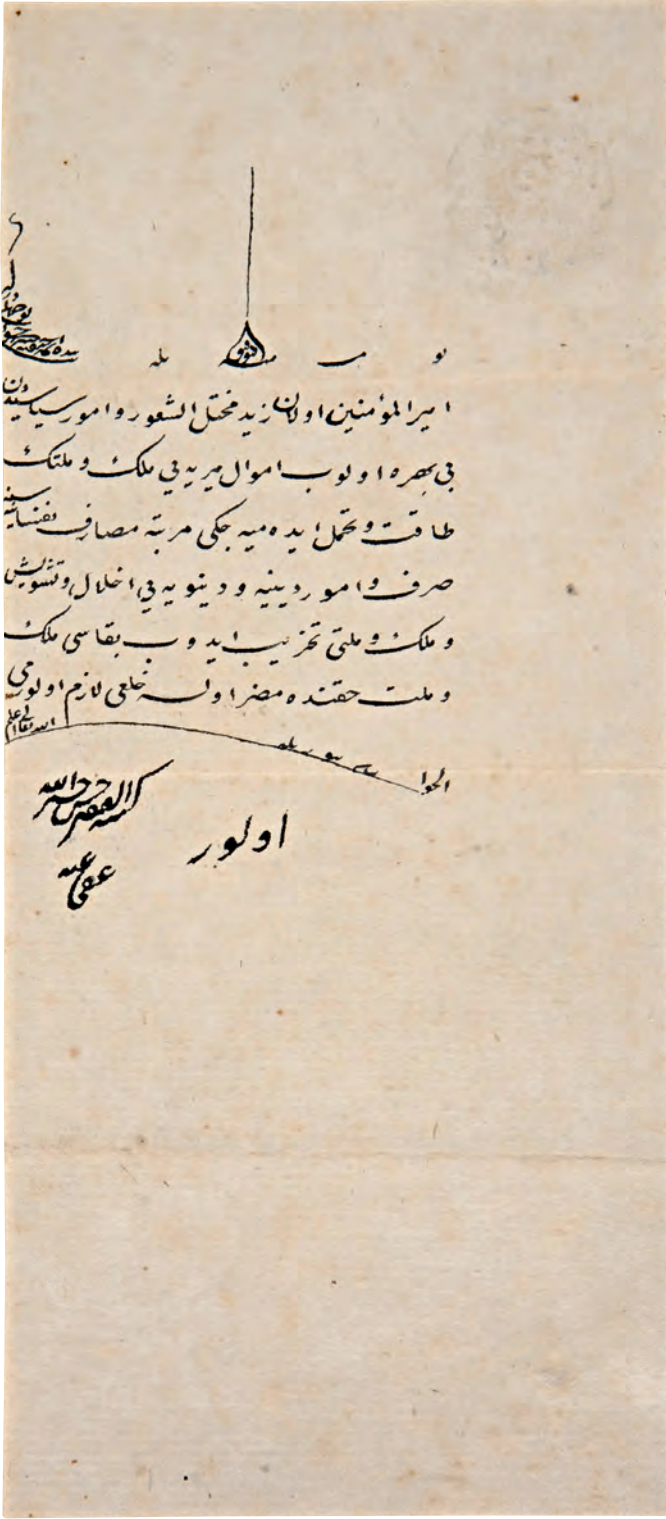 امير المؤمنين اولان زيد مختل الشعور و امور سياسيه دن
بى بهره اولوب اموال ميريه يى ملك و ملتك
طاقت و تحمل ايده ميه جكى مرتبه مصارف نفسانيه سنه
صرف و امور دينيه و دنيويه يى اخلال و تشويش
و ملك و ملتى تخريب ايدوب بقاسى ملك
و ملت حقنده مضر اولسه خلعى لازم اولورمى
الله تعالى اعلم
الجواب
اولور
كتبه الفقير حسن خير الله
عفى عنه